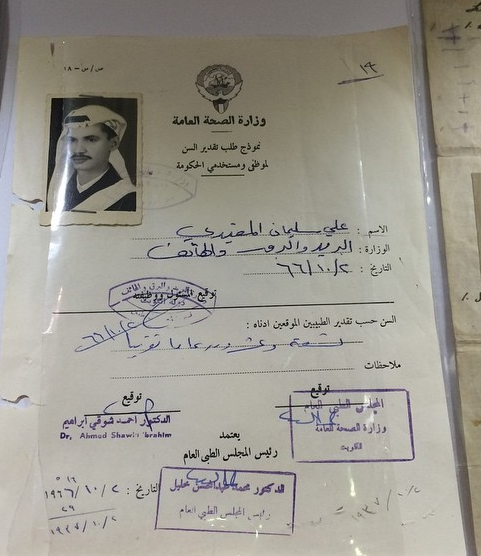 س/ص - ١٨
١٩
وزارة الصحة العامة
نموذج طلب تقدير السن
لموظفى ومستخدمي الحكومة
الاسم : علي سليمان
الوزارة : البريد والبرق والهاتف
التاريخ : ٦٦/١٠/٢
توقيع المسئول ووظيفته
السن حسب تقدير الطبيبين الموقعين ادناه :
تسعة وعشرون عاما تقريبا
ملاحظات
توقيع
توقيع
الدكتور احمد شوقي ابراهيم
Dr. Ahmed Shawki Ibrahim
المجلس الطبي العام
وزارة الصحة العامة
الكويت
يعتمد
رئيس المجلس الطبي العام
الدكتور محمد عبدالمحسن خليل
رئيس المجلس الطبي العام
التاريخ : ١٩٦٦/١٠/٢
٢٩
١٩٣٧/١٠/٢